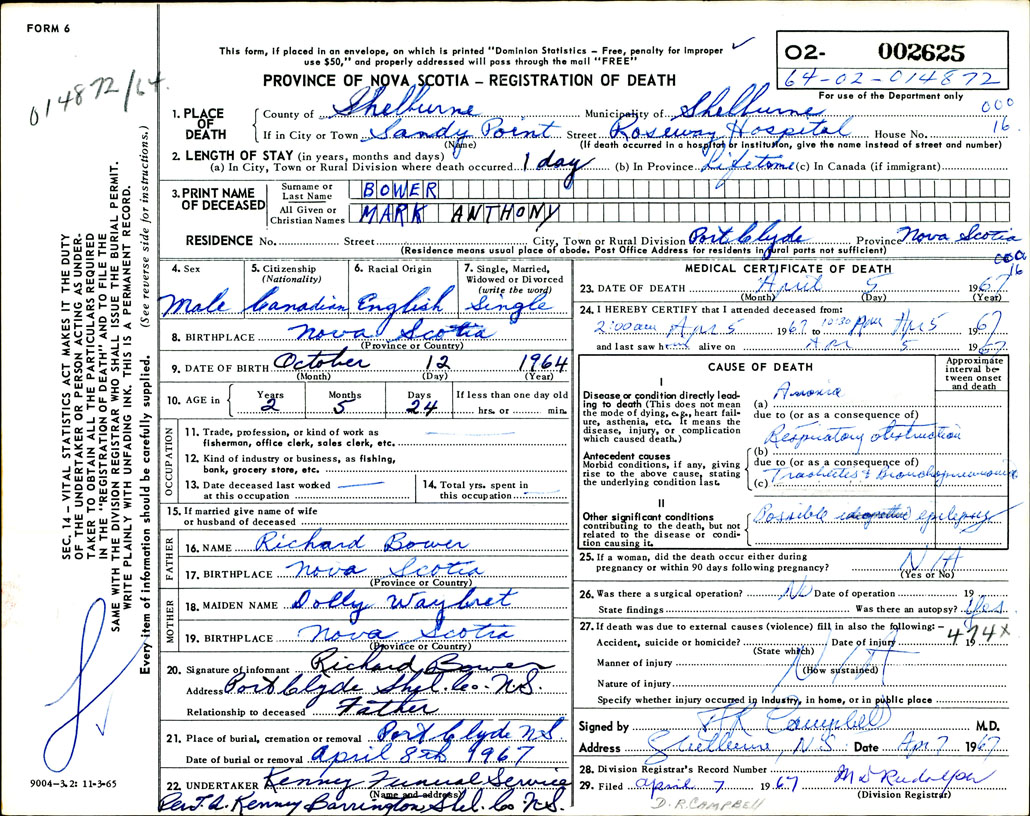 FORM 6
014872/64.
This form, if placed in an envelope, on which is printed "Dominion Statistics – Free, penalty for improper
use $50," and properly addressed will pass through the mail "FREE"
PROVINCE OF NOVA SCOTIA – REGISTRATION OF DEATH
02- 002625
64-02-014872
For use of the Department only
000
16
1. PLACE OF DEATH
County of Shelburne Municipality of Shelburne
If in City or Town Sandy Point Street Roseway Hospital House No.
(Name) (If death occurred in a hospital or institution, give the name instead of street and number)
2. LENGTH OF STAY (in years, months and days)
(a) In City, Town or Rural Division where death occurred 1 day (b) In Province Lifetime (c) In Canada (if immigrant)
3. PRINT NAME OF DECEASED
Surname or Last Name BOWER
All Given or Christian Names MARK ANTHONY
RESIDENCE No. Street City, Town or Rural Division Port Clyde Province Nova Scotia
(Residence means usual place of abode. Post Office Address for residents in rural parts not sufficient)
000
16
4. Sex
Male
5. Citizenship (Nationality)
Canadian
6. Racial Origin
English
7. Single, Married, Widowed or Divorced (write the word)
Single
8. BIRTHPLACE Nova Scotia
(Province or Country)
9. DATE OF BIRTH October 12 1964
(Month) (Day) (Year)
10. AGE in Years Months Days If less than one day old
2 5 24 hrs. or min.
OCCUPATION
11. Trade, profession, or kind of work as
fisherman, office clerk, sales clerk, etc.
12. Kind of industry or business, as fishing,
bank, grocery store, etc.
13. Date deceased last worked
at this occupation
14. Total yrs. spent in
this occupation
15. If married give name of wife
or husband of deceased
FATHER
16. NAME Richard Bower
17. BIRTHPLACE Nova Scotia
(Province or Country)
MOTHER
18. MAIDEN NAME Dolly Waybret
19. BIRTHPLACE Nova Scotia
(Province or Country)
20. Signature of informant Richard Bower
Address Port Clyde Shel. Co. N.S.
Relationship to deceased Father
21. Place of burial, cremation or removal Port Clyde N.S.
Date of burial or removal April 8th 1967
22. UNDERTAKER Kenney Funeral Service
(Name and address)
Per T. A. Kenney Barrington Shel. Co N.S.
MEDICAL CERTIFICATE OF DEATH
23. DATE OF DEATH April 5 1967
(Month) (Day) (Year)
24. I HEREBY CERTIFY that I attended deceased from:
2:00am Apr 5 1967 to 10:30 Apr 5 1967
and last saw h alive on Apr 5 1967
CAUSE OF DEATH
Approximate interval between onset and death
I
Disease or condition directly leading to death (This does not mean the mode of dying, e.g., heart failure, asthenia, etc. It means the disease, injury, or complication which caused death.)
(a) Anoxia
due to (or as a consequence of)
Respiratory obstruction
Antecedent causes
Morbid conditions, if any, giving rise to the above cause, stating the underlying condition last.
(b)
due to (or as a consequence of)
(c) Tracheitis & Bronchopneumonia
II
Other significant conditions
contributing to the death, but not related to the disease or condition causing it.
Possible epilepsy
25. If a woman, did the death occur either during
pregnancy or within 90 days following pregnancy? N/A
(Yes or No)
26. Was there a surgical operation? No Date of operation 19
State findings Was there an autopsy? Yes
27. If death was due to external causes (violence) fill in also the following:– 474X
Accident, suicide or homicide? Date of injury 19
(State which)
Manner of injury N/A
(How sustained)
Nature of injury
Specify whether injury occurred in industry, in home, or in public place
Signed by Campbell M.D.
Address Shelburne, N.S. Date Apr 7 1967
28. Division Registrar's Record Number
29. Filed April 7 1967 M D Rudolph
(Division Registrar)
D.R. CAMPBELL
SEC. 14 – VITAL STATISTICS ACT MAKES IT THE DUTY
OF THE UNDERTAKER OR PERSON ACTING AS UNDER-
TAKER TO OBTAIN ALL THE PARTICULARS REQUIRED
IN THE "REGISTRATION OF DEATH" AND TO FILE THE
SAME WITH THE DIVISION REGISTRAR WHO SHALL ISSUE THE BURIAL PERMIT.
WRITE PLAINLY WITH UNFADING INK. THIS IS A PERMANENT RECORD.
Every item of information should be carefully supplied. (See reverse side for instructions.)
9004–3.2: 11-3-65